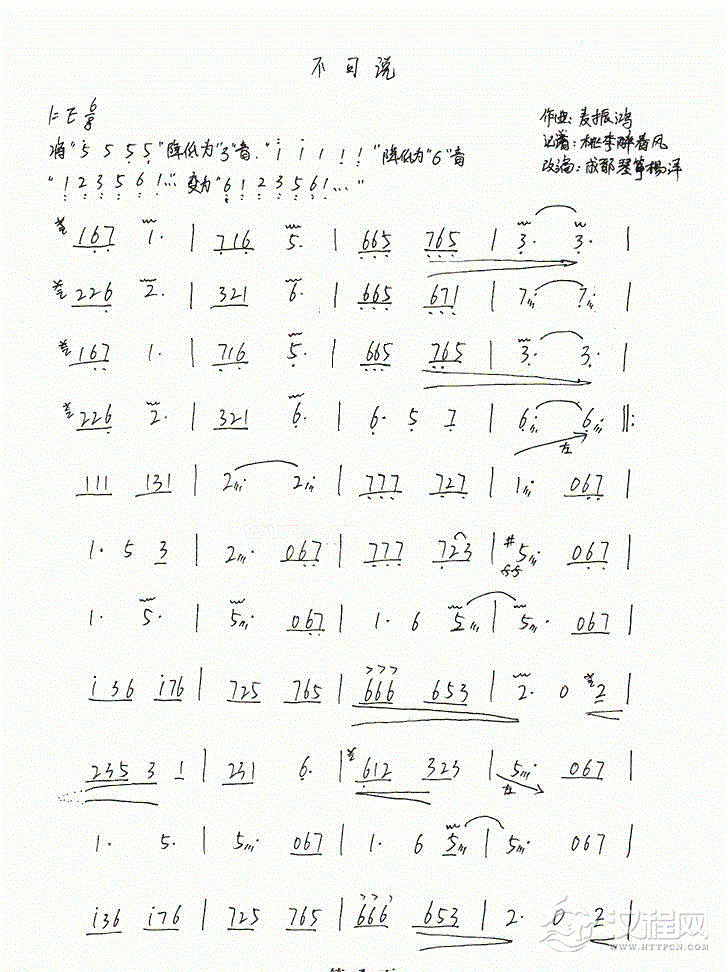 不可说
1=E 6/8
作曲:麦振鸿
将"5 5 5 5"降低为"3"音."i 1 1 1 1"降低为"6"音
记谱:桃李醉春风
"1 2 3 5 6 1..."变为"6 1 2 3 5 6 1..."
改编:成都琴筝杨洋
167 1· | 716 5 | 665 765 | 3· 3· |
226 2· | 321 6· | 665 671 | 7· 7· |
167 1· | 716 5· | 665 765 | 3· 3· |
226 2· | 321 6· | 6· 5 7 | 6· 6· ‖:
左
111 131 | 2· 2· | 777 727 | 1· 067 |
1· 5 3 | 2· 067 | 777 723 | #5· 067 |
1· 5· | 5· 067 | 1· 6 5 | 5· 067 |
i36 i76 | 725 765 | 666 653 | 2· 0 2 |
235 3 1 | 231 6· | 612 323 | 5· 067 |
左
1· 5· | 5· 067 | 1· 6 5 | 5· 067 |
i36 i76 | 725 765 | 666 653 | 2· 0 2 |
汉程网
WWW.HTTPCN.COM